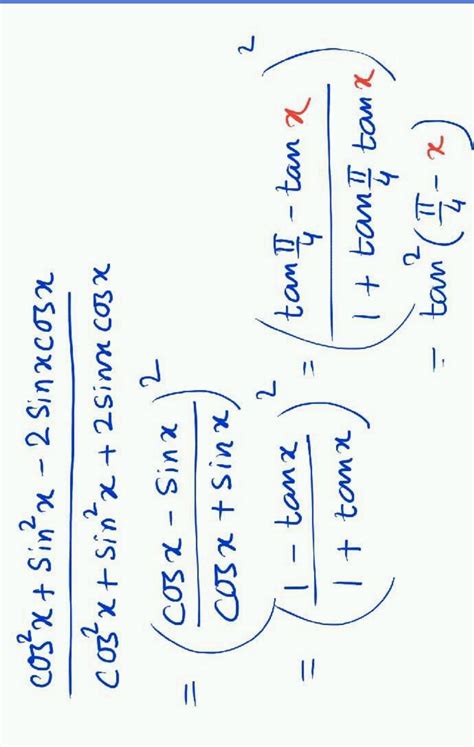 cos²x + sin²x - 2 sinx cosx
cos²x + sin²x + 2 sinx cosx
= (cosx - sinx / cosx + sinx)²
= (1 - tanx / 1 + tanx)²
= (tan π/4 - tan x / 1 + tan π/4 tan x)²
= tan² (π/4 - x)